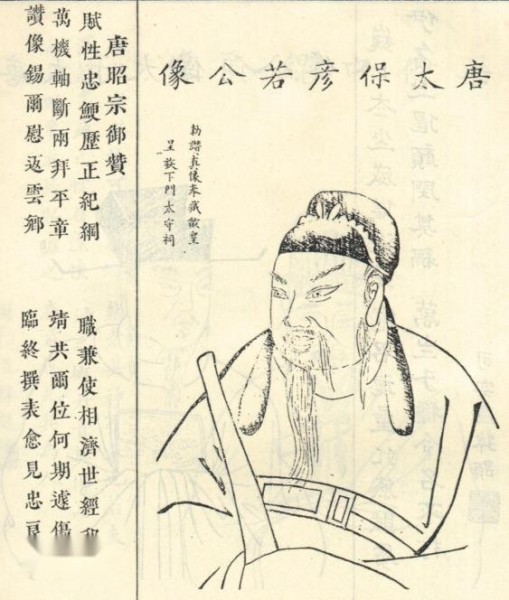 唐太保彥若公像
呈
下門太守祠
唐昭宗御贊
賦性忠鯁歷正紀綱 職兼使相濟世經
萬機軸斷兩拜平章 靖共爾位何期遽傷
讚像錫爾慰返雲鄉 臨終撰表愈見忠